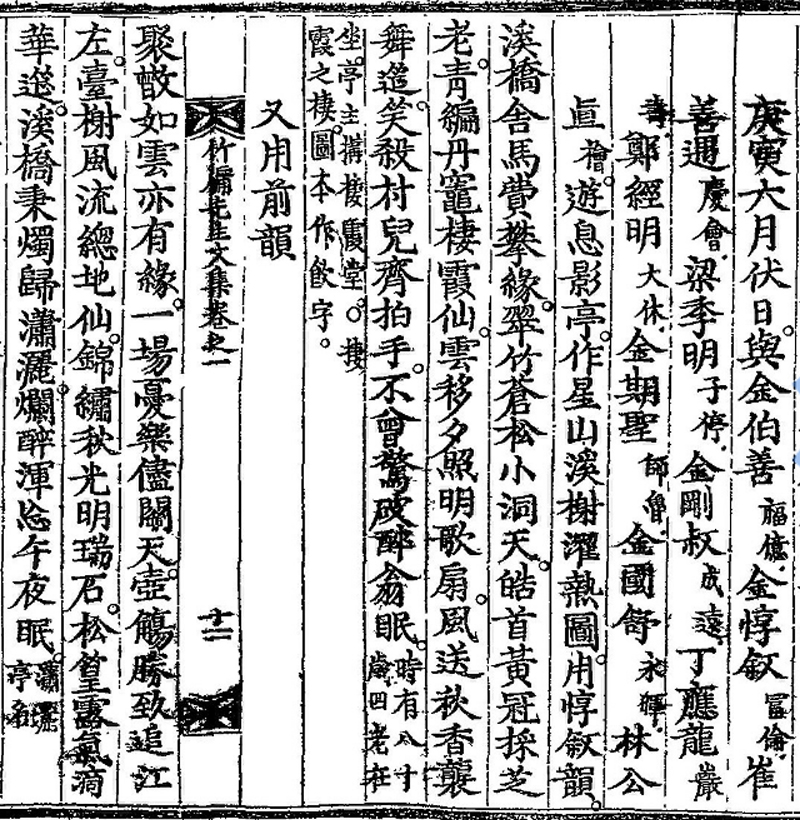 庚寅六月伏日。與金伯善福億金惇叙冨倫崔
善遇慶會梁季明子渟金剛叔成遠丁應龍巖
壽鄭經明大休金期聖師魯金國舒永輝林公
直檜。遊息影亭。作星山溪榭濯熱圖。用惇叙韻。
溪橋舍馬費攀緣。翠竹蒼松小洞天。皓首黃冠採芝
老。靑編丹竈棲霞仙。雲移夕照明歌扇。風送秋香襲
舞筵。笑殺村兒齊拍手。不曾驚破醉翁眠。時有八十歲四老在
坐。亭主搆棲霞堂。○捿霞之棲。圖本作飮字。
又用前韻
聚散如雲亦有緣。一場憂樂儘關天。壺觴勝致追江
竹 先生文集卷之一 十二
左。臺榭風流總地仙。錦繡秋光明瑞石。松篁露氣滴
華筵。溪橋秉燭歸瀟灑。爛醉渾忘午夜眠。瀟灑亭名